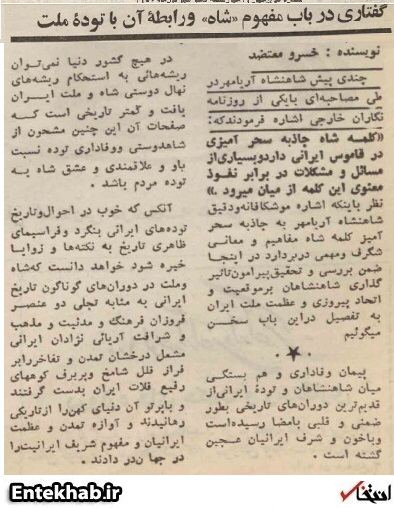 گفتاری در باب مفهوم «شاه» ورابطهٔ آن با تودهٔ ملت
نویسنده : خسرو معتضد
چندی پیش شاهنشاه آریامهر در
طی مصاحبه‌ای بایکی از روزنامه
نگاران خارجی اشاره فرمودند که:
«کلمه شاه جاذبه سحر آمیزی
در قاموس ایرانی دارد و بسیاری از
مسائل و مشکلات در برابر نفوذ
معنوی این کلمه از میان میرود .»
نظر باینکه اشاره موشکافانه و دقیق
شاهنشاه آریامهر به جاذبه سحر
آمیز کلمه شاه مفاهیم و معانی
شگرف و مهمی دربردارد در اینجا
ضمن بررسی و تحقیق پیرامون تاثیر
گذاری شاهنشاهان بر موقعیت و
اتحاد پیروزی و عظمت ملت ایران
به تفصیل در این باب سخن
میگوئیم
پیمان وفاداری و هم بستگی
میان شاهنشاهان و تودهٔ ایرانی از
قدیم‌ترین دوران‌های تاریخی بطور
ضمنی و قلبی بامضا رسیده‌است
و باخون و شرف ایرانیان عجین
گشته است .
در هیچ کشور دنیا نمی‌توان
ریشه‌هائی به استحکام ریشه‌های
نهال دوستی شاه و ملت ایران
یافت و کمتر تاریخی است که
صفحات آن این چنین مشحون از
شاهدوستی ووفاداری توده نسبت
باو و علاقمندی و عشق شاه به
توده مردم باشد .
آنکس که خوب در احوال و تاریخ
توده‌های ایرانی بنگرد و فراسیمای
ظاهری تاریخ به نکته‌ها و زوایا
خیره شود خواهد دانست که شاه
و ملت در دوران‌های گوناگون تاریخ
ایرانی به مثابه تجلی دو عنصر
فروزان فرهنگ و مدنیت و مذهب
و شرافت آریائی نژادان ایرانی
مشعل درخشان تمدن و تفاخر را بر
فراز قلل شامخ و پربرف کوههای
رفیع فلات ایران بدست گرفتند
و با پرتو آن دنیای کهن را از تاریکی
رهانیدند و آوازه تمدن و عظمت
ایرانیان و مفهوم شریف ایرانیت را
در جهان در دادند .
Entekhab.ir
انتخاب